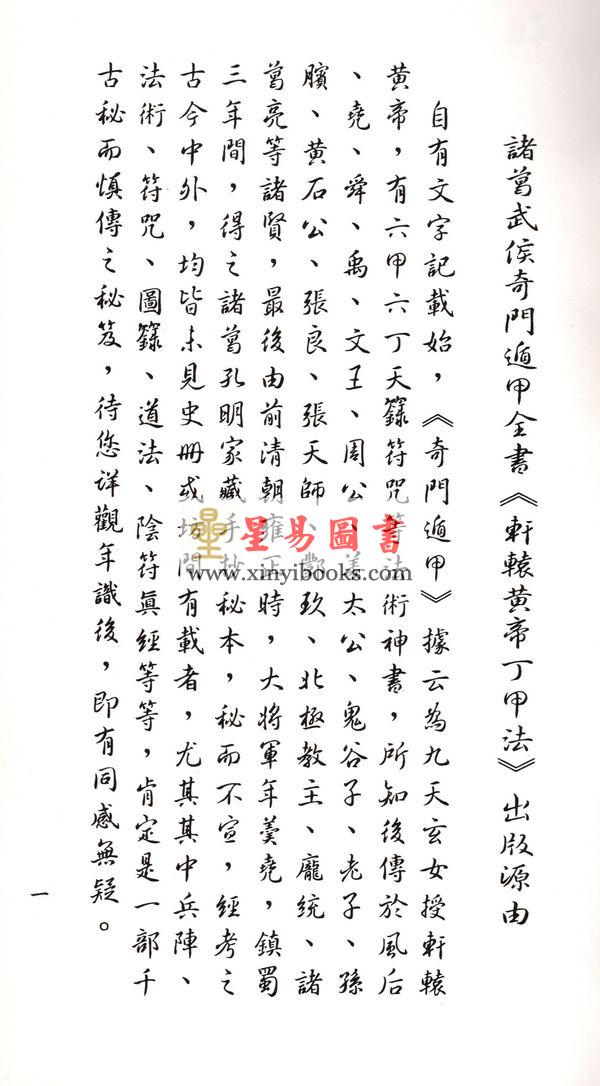 諸葛武侯奇門遁甲全書《軒轅黃帝丁甲法》出版源由
自有文字記載始，《奇門遁甲》據云為九天玄女授軒轅
黃帝，有六甲六丁天籙符咒等法術神書，所知後傳於風后
、堯、舜、禹、文王、周公、姜太公、鬼谷子、老子、孫
臏、黃石公、張良、張天師、玖、北極教主、龐統、諸
葛亮等諸賢，最後由前清朝雍正時，大將軍年羹堯，鎮蜀
三年間，得之諸葛孔明家藏手抄秘本，秘而不宣，經考之
古今中外，均皆未見史冊或坊間有載者，尤其其中兵陣、
法術、符咒、圖籙、道法、陰符眞經等等，肯定是一部千
古秘而慎傳之秘笈，待您详觀年識後，即有同感無疑。
一
星易圖書
www.xinyibooks.com